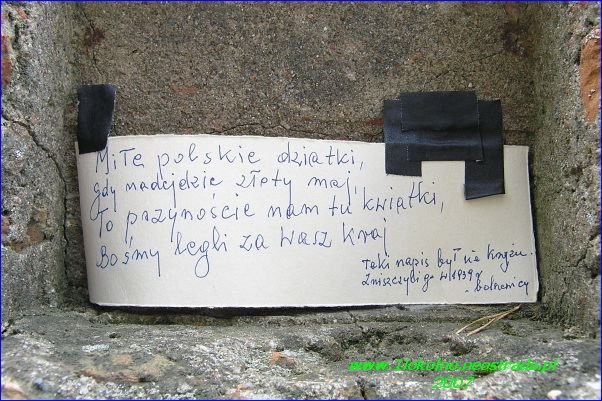 Miłe polskie dziatki,
gdy nadejdzie złoty maj,
To przynoście nam tu kwiatki,
Bośmy legli za wasz kraj
Taki napis był na krzyżu.
Zniszczyli go w 1939 r
. Lotnicy
2007